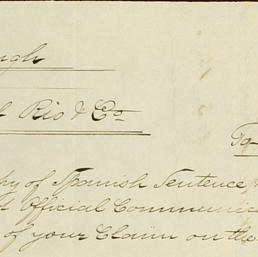 ugh
Rio & Co
To
py of Spanish Sentence
Official Communic
of your Claim on the